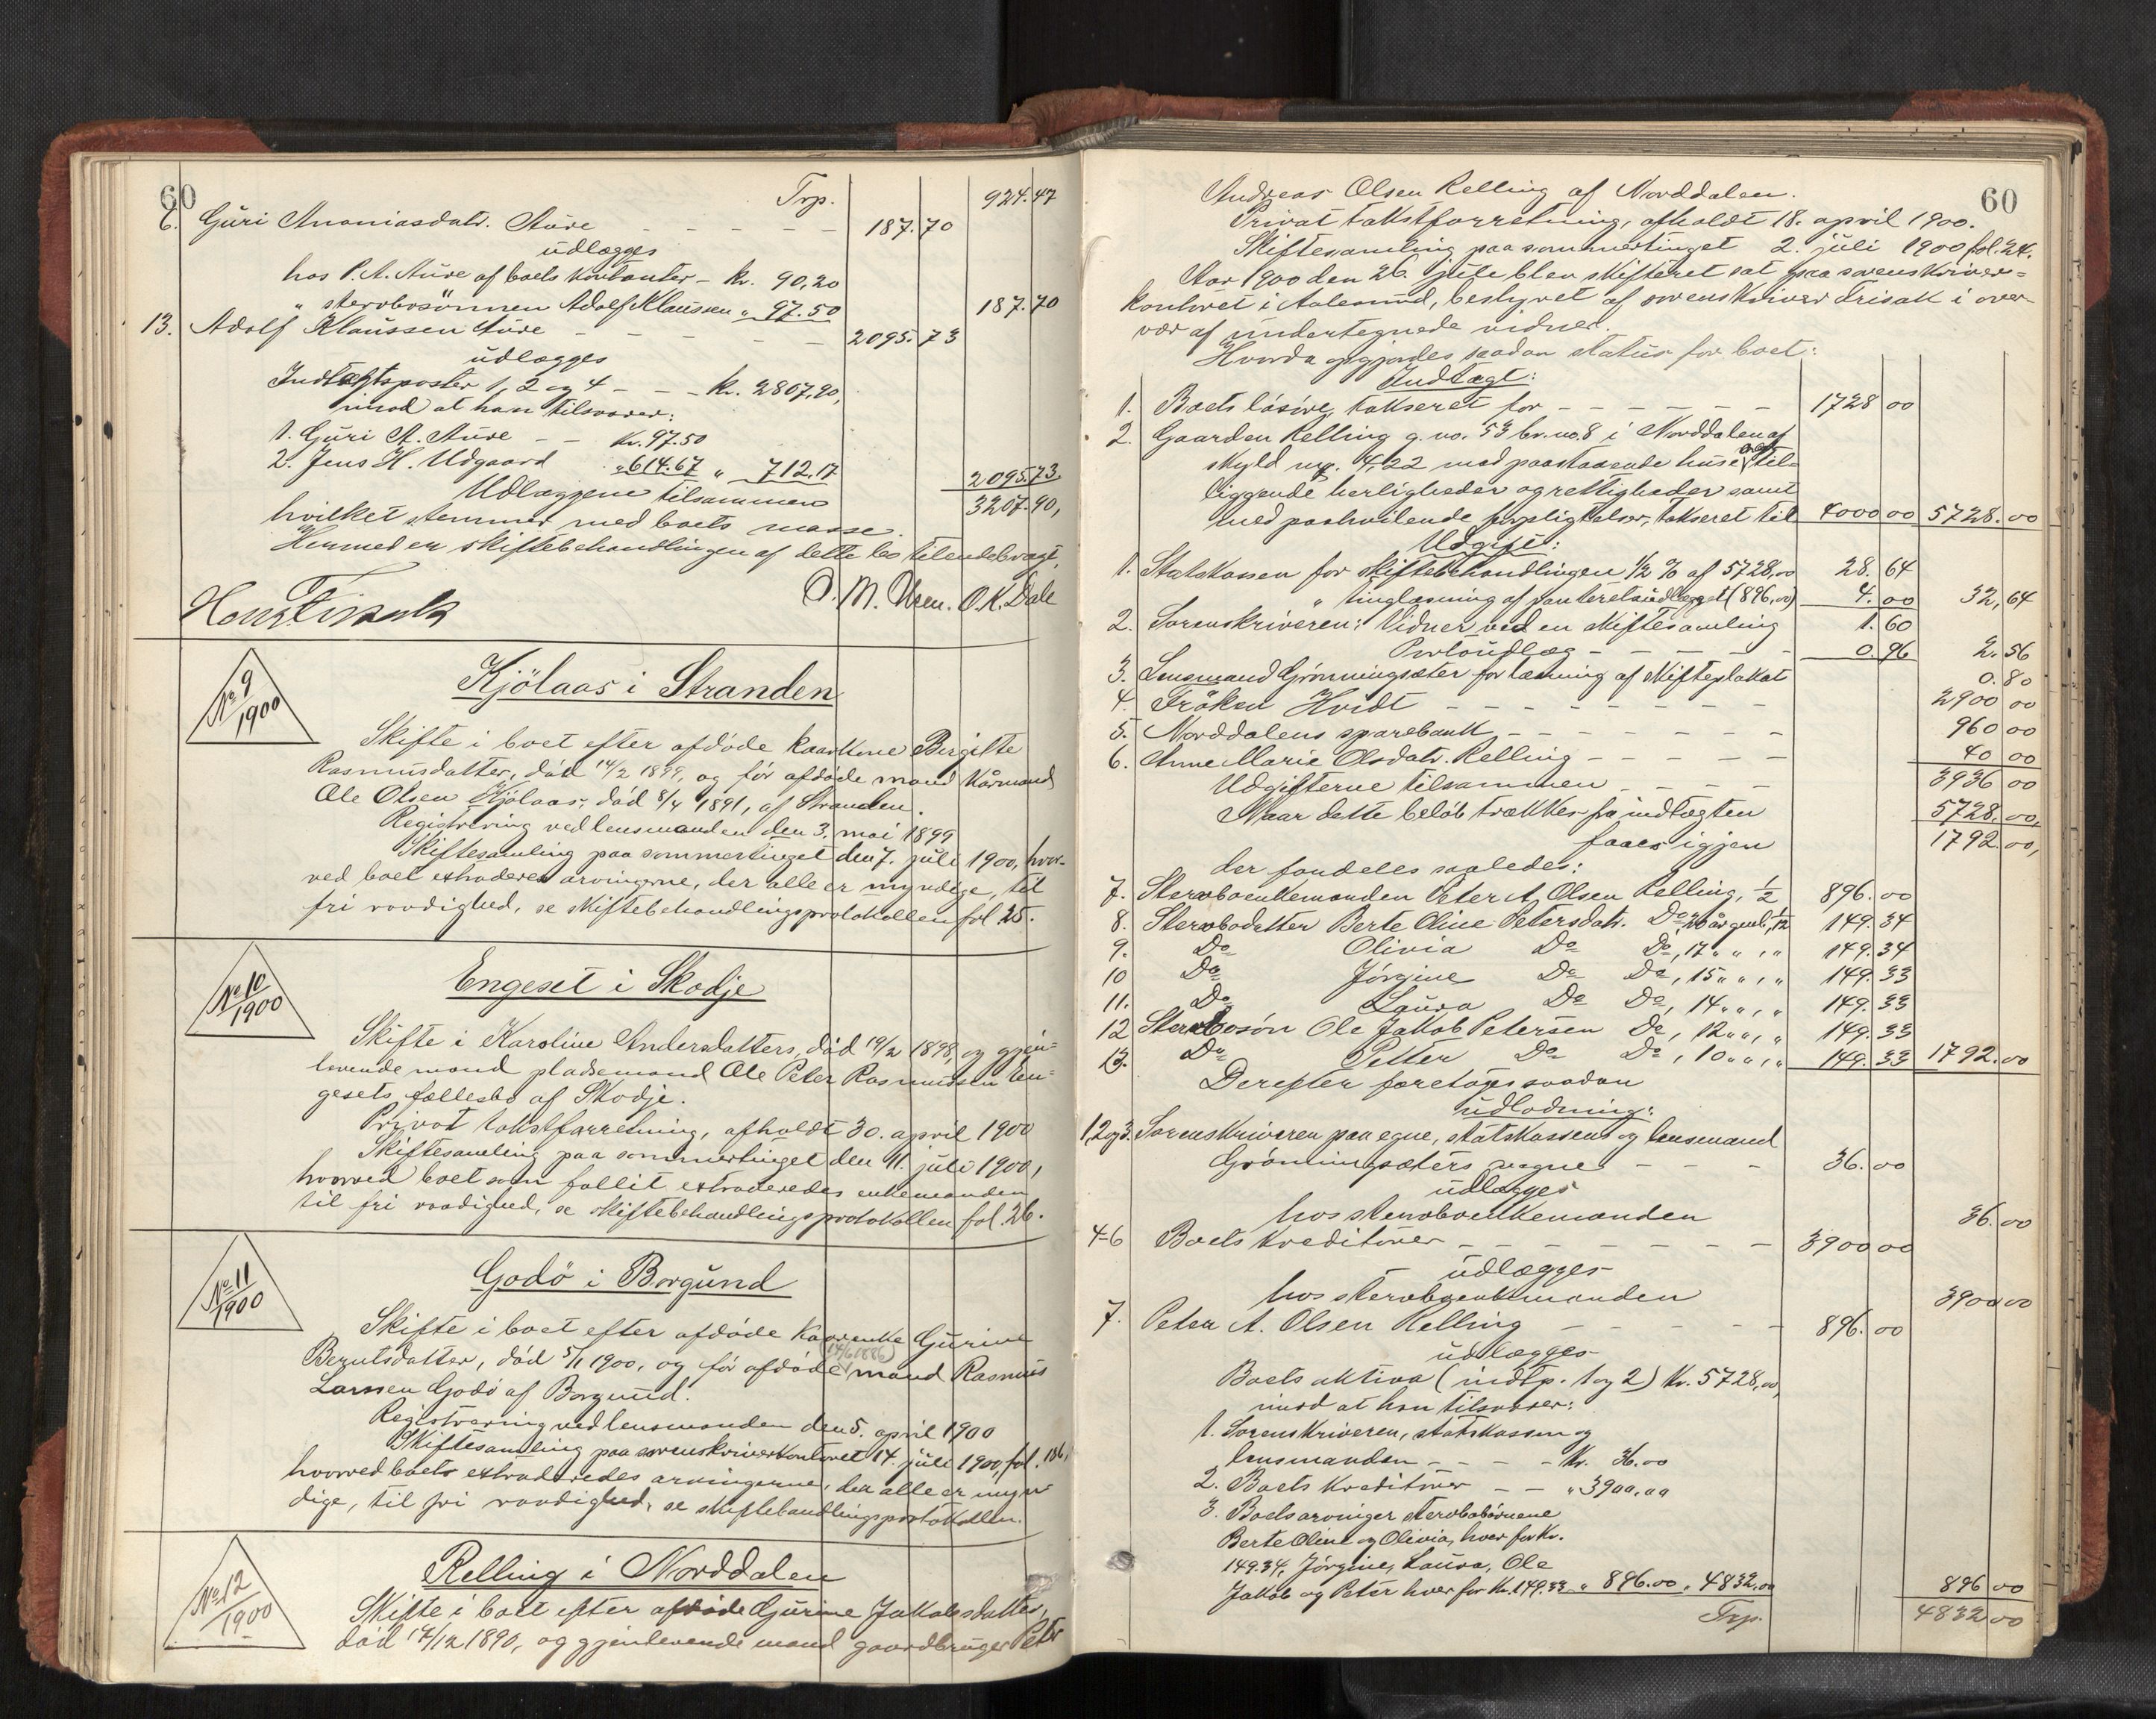 60
Trp. 924.47
6. Guri Ananiasdatr. Aure – – – – – 187.70
udlægges
hos P. A. Aure af boets kontanter – kr. 90,20
" stervbosönnen Adolf Klaussen " 97.50 187.70
13. Adolf Klaussen Aure – – – – 2095.73
udlægges
Indtægtsposter 1, 2 og 4 – – – kr. 2807,90,
imod at han tilsvarer:
1. Guri A. Aure – – Kr. 97.50
2. Jens H. Udgaard " 614.67 " 712.17 2095.73
Udlæggene tilsammen 3207.90,
hvilket stemmer med boets masse.
Hermed er skiftebehandlingen af dette bo tilendebragt.
O. M. Uren. O. K. Dale
No 9 1900
Kjölaas i Stranden
Skifte i boet efter afdöde kaarkone Birgitte
Rasmusdatter, död 14/2 1899, og för afdöde mand kårmand
Ole Olsen Kjölaas, död 8/4 1891, af Stranden.
Registrering ved lensmanden den 3. mai 1899
Skiftesamling paa sommertinget den 7. juli 1900, hvor-
ved boet extraderes arvingerne, der alle er myndige, til
fri raadighed, se skiftebehandlingsprotokollen fol 25.
No 10 1900
Engeset i Skodje
Skifte i Karoline Andersdatters, död 19/2 1898, og gjen-
levende mand pladsemand Ole Peter Rasmussen En-
gesets fællesbo af Skodje.
Privat takstforretning, afholdt 30. april 1900
Skiftesamling paa sommertinget den 11. juli 1900,
hvorved boet som fallit extraderedes enkemanden
til fri raadighed, se skiftebehandlingsprotokollen fol. 26.
No 11 1900
Godö i Borgund
Skifte i boet efter afdöde kaarenke Gurine
Berntsdatter, död 5/1 1900, og för afdöde (14/6 1886) mand Rasmus
Larssen Godö af Borgund.
Registrering ved lensmanden den 5. april 1900
Skiftesamling paa sorenskriverkontoret 14. juli 1900, fol. 186,
hvorved boets extraderedes arvingerne, der alle er myn-
dige, til fri raadighed, se skiftebehandlingsprotokollen.
No 12 1900
Relling i Norddalen
Skifte i boet efter afdöde Gurine Jakobsdatter,
död 14/12 1890, og gjenlevende mand gaardbruger Peter
60
Andreas Olsen Relling af Norddalen.
Privat takstforretning, afholdt 18. april 1900.
Skiftesamling paa sommertinget 2. juli 1900 fol. 24.
Aar 1900 den 26. juli blev skifteret sat paa sorenskriver-
kontoret i Aalesund, bestyret af sorenskriver Frisak i over-
vær af undertegnede vidner.
Hvorda opgjordes saadan status for boet:
Indtægt:
1. Boets lösöre, takseret for – – – – – 1728 00
2. Gaarden Relling g. no. 53 br. no. 8 i Norddalen af
skyld mrk. 4,22 med paastaaende huse og til-
liggende herligheder og rettigheder samt
med paahvilende forpligtelser, takseret til 4000 00 5728.00
Udgift:
1. Statskassen for skiftebehandlingen 1/2 % af 5728,00 28.64
" tinglæsning af panteretsudlægget (896,00) 4.00 32,64
2. Sorenskriveren: Vidner ved en skiftesamling 1.60
Portoudlæg – – – – – 0.96 2.56
3. Lensmand Grönningsæter for læsning af skifteplakat 0.80
4. Fröken Hvidt – – – – – – – 2900 00
5. Norddalens sparebank – – – – – – 960 00
6. Anne Marie Olsdatr. Relling – – – – 40 00
Udgifterne tilsammen – – – – 3936 00
Naar dette belöb trækkes fra indtægten 5728.00,
faaes igjen 1792.00,
der fordeles saaledes:
7. Stervboenkemanden Peter A. Olsen Relling, 1/2 896.00
8. Stervbodatter Berte Oline Petersdatr. Do, 20 år gml, 1/12 149.34
9. Do Olivia Do Do, 17 " " , " 149.34
10 Do Jörgine Do Do, 15 " " , " 149.33
11. Do Laura Do Do, 14 " " , " 149.33
12 Stervbosön Ole Jakob Petersen Do, 12 " " , " 149.33
13. Do Petter Do Do, 10 " " , " 149.33 1792.00
Derefter foretages saadan
udlodning:
1, 2 og 3. Sorenskriveren paa egne, statskassens og lensmand
Grönningsæters vegne – – – 36.00
udlægges
hos stervboenkemanden 36.00
4-6 Boets kreditorer – – – – – – 3900 00
udlægges
hos stervboenkemanden 3900 00
7. Peter A. Olsen Relling – – – – – 896.00
udlægges
Boets aktiva (indtp. 1 og 2) kr. 5728,00,
imod at han tilsvarer:
1. Sorenskriveren, statskassen og
lensmanden – – – – Kr. 36.00
2. Boets kreditorer – – " 3900,00
3. Boets arvinger stervbobörnene
Berte Oline og Olivia, hver for Kr.
149.34, Jörgine, Laura, Ole
Jakob og Peter hver for kr. 149.33 " 896.00 " 4832,00 896 00
Trp. 4832 00